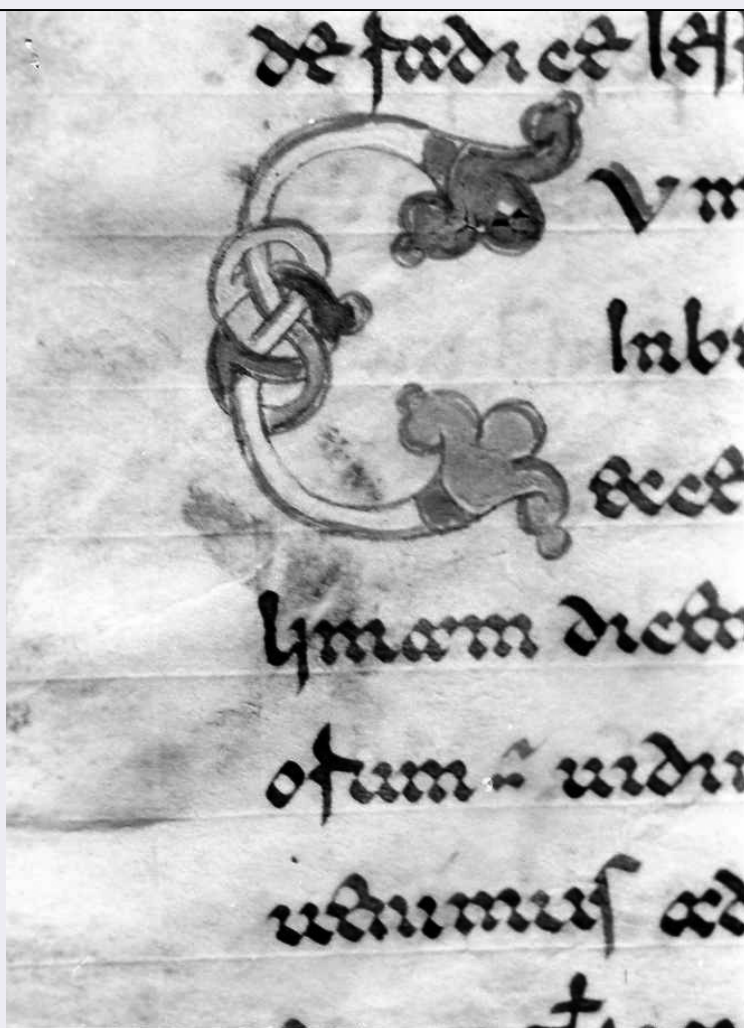 de radice iess
Cum
In be
ecce
lymam dicen
orum uidi
uenimus ad